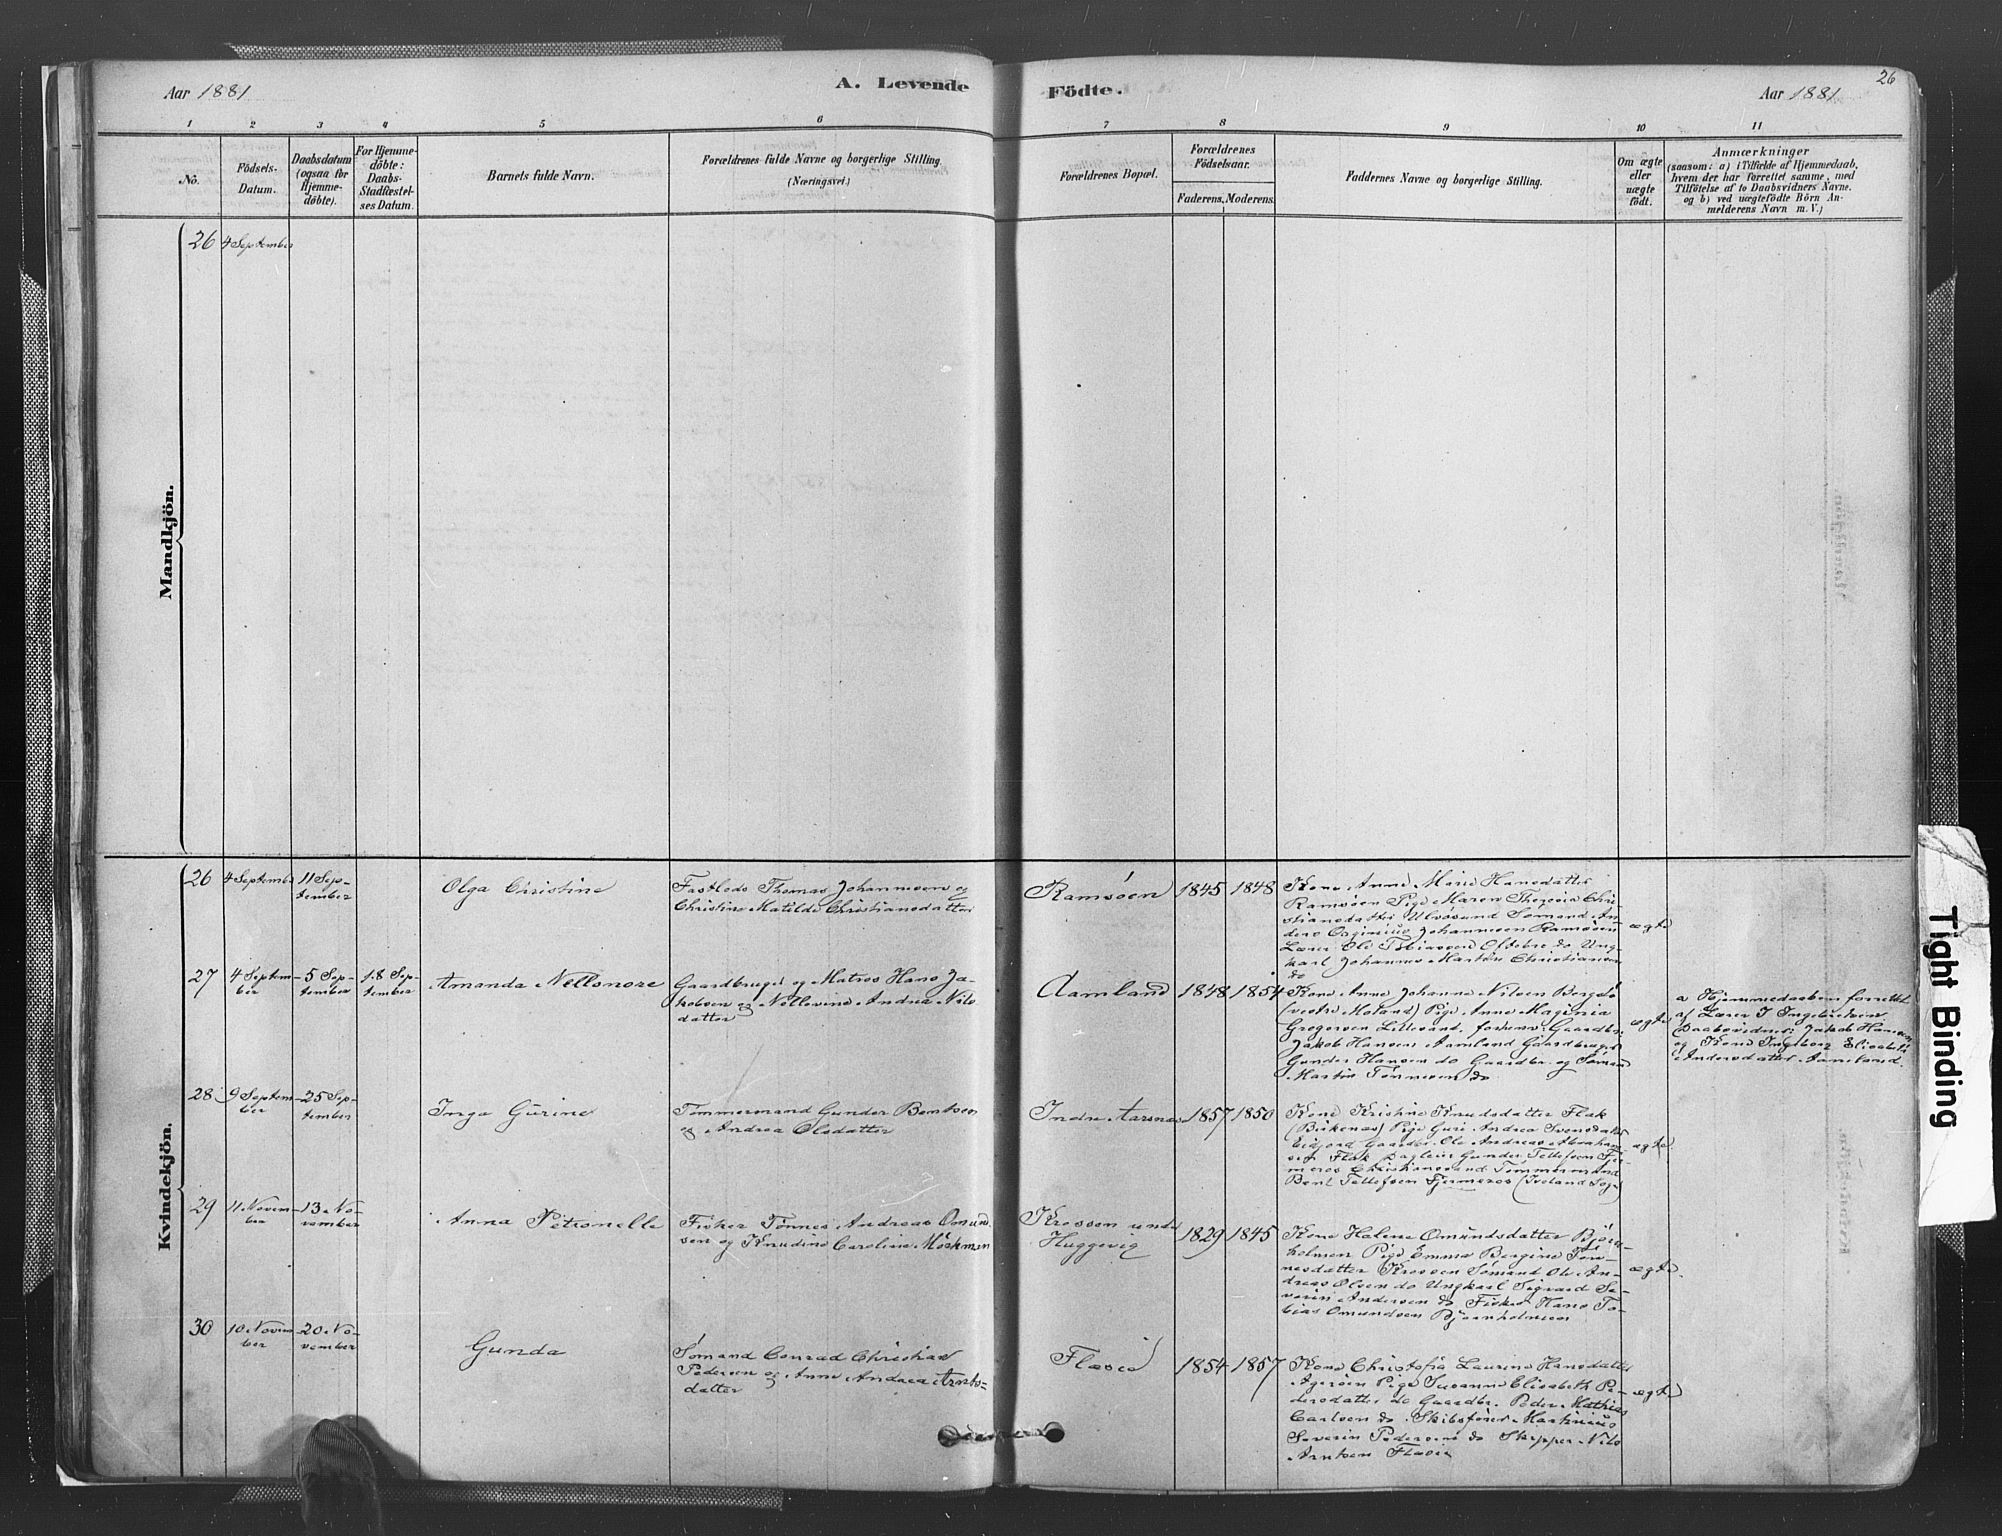 Aar 1881
A. Levende
Födte.
Aar 1881
26
1 2 3 4 5 6 7 8 9 10 11
No.
Födsels-
Datum.
Daabsdatum
(ogsaa for
Hjemme-
döbte).
For Hjemme-
döbte:
Daabs-
Stadfæstel-
ses Datum.
Barnets fulde Navn.
Forældrenes fulde Navne og borgerlige Stilling.
(Næringsvei.)
Forældrenes Bopæl.
Forældrenes
Födselsaar.
Faderens. Moderens.
Faddernes Navne og borgerlige Stilling.
Om ægte
eller
uægte
födt.
Anmærkninger
(saasom: a) i Tilfælde af Hjemmedaab,
hvem der har forrettet samme, med
Tilföielse af to Daabsvidners Navne.
og b) ved uægtefödte Börn An-
melderens Navn m. V.)
Mandkjön.
26 4 September
Kvindekjön.
26
4 Septembe
11 Sep-
tember
Olga Christine
Fastleds Thomas Johannesen og
Christine Matilde Christiansdatter
Ramsöen
1845 1848
Kone Anne Marie Hansdatter
Ramsöen Pige Maren Theresia Chri-
stiansdatter Ulvösund Sømand An-
ders Johannesen Ramsöen
Lærer Ole Tobiassen Oftebro do Ung-
karl Johannes Martin Christiansen
do
ægte
27
4 Septem-
ber
5 Sep-
tember
18 Sep-
tember
Amanda Nellonore
Gaardbruger og Matros Hans Ja-
kobsen og Nellevine Andrea Nils
datter
Aamland
1848 1854
Kone Anne Johanne Nilsen
(vestre Moland) Pige Anne
Gregersen Lillesand, Gaardbr.
Jakob Hansen Aamland Gaardbruger
Gunder Hansen do Gaardbr. og Sømand
Martin Tønnesen do
ægte
a Hjemmedaaben forrettet
af Lærer J Ingebretsen
Daabsvidner: Jakob Hansen
og Kone Ingeborg Elisabeth
Andersdatter Aamland.
28
9 Septem-
ber
25 Sep-
tember
Inga Gurine
Tømmermand Gunder Bentsen
og Andrea Olsdatter
Indre Aarsnes
1857 1850
Kone Kristine Knudsdatter Flak
(Birkenæs) Pige Guri Andrea Svensdatter
Eidjord Gaardbr. Ole Andreas Abraham
sen Flak Dagleier Gunder Tellefsen
Christianssand Tømmermand
Bent Tellefsen (Iveland Sogn)
ægte.
29
11 Novem-
ber
13 No-
vember
Anna Petronelle
Fisker Tønnes Andreas Omund
sen og Knudine Caroline Mörkmen
Krossen under
Huggevig
1829 1845
Kone Helene Omundsdatter Björn-
holmen Pige Emma Bergine Tøn-
nesdatter Krossen Sømand Ole An-
dreas Olsen do Ungkarl Sigvard Se-
verin Andersen do Fisker Hans To-
bias Omundsen Bjørnholmen
ægte.
30
10 Novem-
ber
20 No-
vember
Gunda
Sømand Conrad Christian
Pedersen og Anne Andrea Arnts-
datter
Flasvo
1854 1857
Kone Christofia Laurine Hansdatter
Agerøen Pige Susanne Elisabeth Pe-
dersdatter do Gaardbr. Peder Mathias
Carlsen do Skibsfører Martinius
Severin Pedersen do Skipper Nils
Arntsen
ægte
Tight Binding